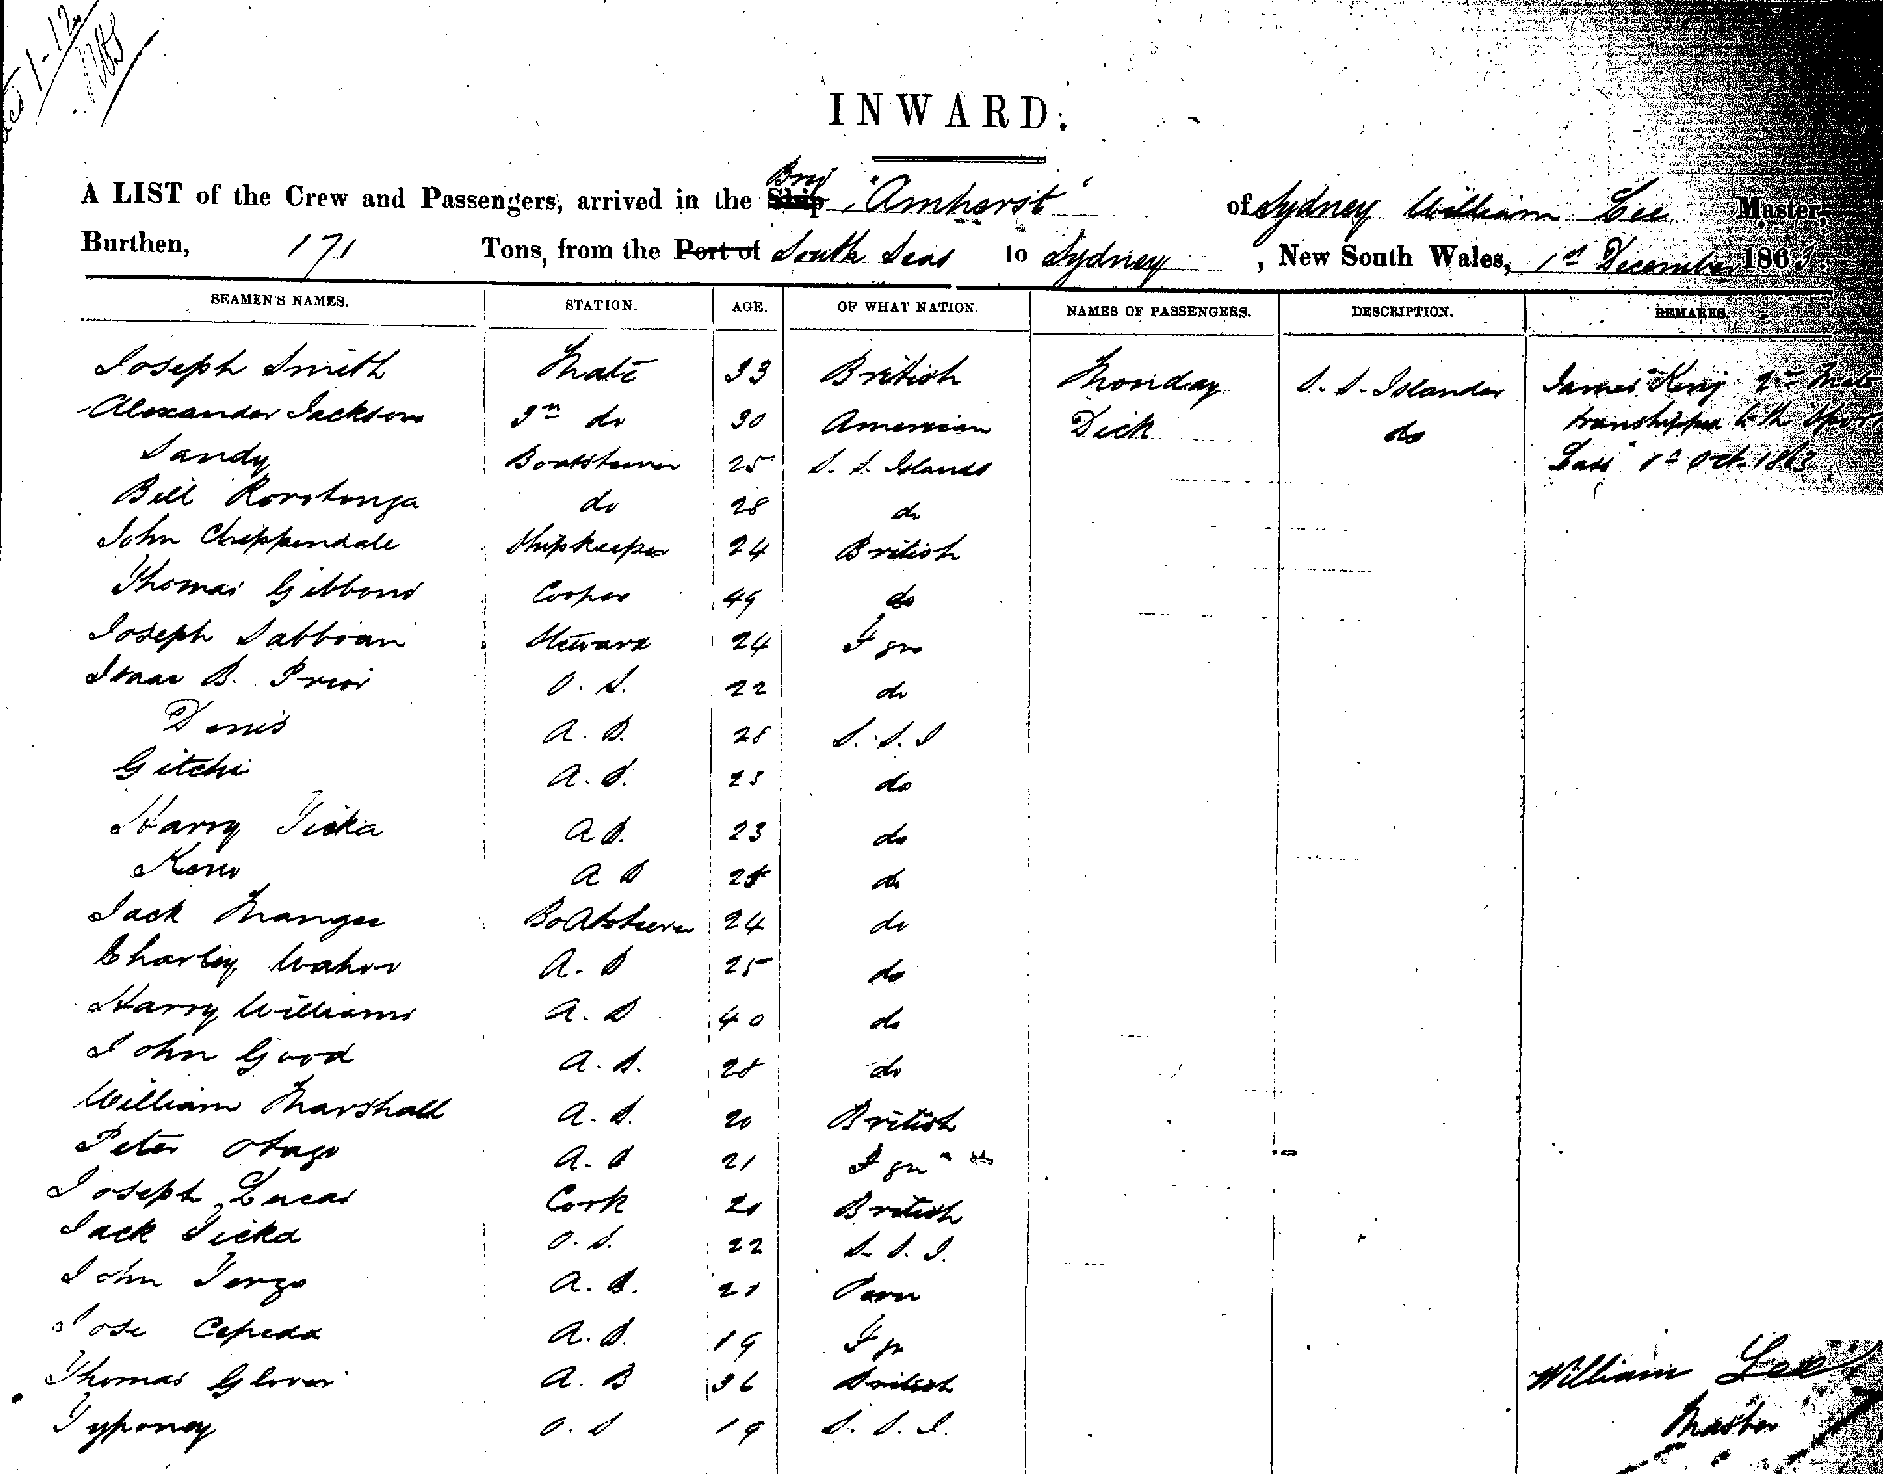 INWARD.
A LIST of the Crew and Passengers, arrived in the Ship Brig "Amherst" of Sydney William Lee Master,
Burthen, 171 Tons, from the Port of South Seas to Sydney, New South Wales, 1st December 186
SEAMEN'S NAMES. STATION. AGE. OF WHAT NATION. NAMES OF PASSENGERS. DESCRIPTION. REMARKS.
Joseph Smith Mate 33 British Monday S. S. Islander James King 2nd Mate
Alexander Jackson 3rd do 30 American Dick do transhipped to the
Sandy Boatsteerer 25 S. S. Islands 1st Oct. 1863
Bill Rorotonga do 28 do
John Chippendale Shipkeeper 24 British
Thomas Gibbons Cooper 49 do
Joseph Steward 24 Fgn
Isaac B. Prior O. S. 22 do
Denis A. B. 28 S. S. I
Gitchi A. B. 23 do
Harry Ticka A B. 23 do
A B do
Jack Mangee Boatsteerer 24 do
Charley Wahoo A. B 25 do
Harry Williams A. B 40 do
John Good A. B. 28 do
William Marshall A. B. 20 British
Peter Otago A. B 21 Fgn
Joseph Lucas Cook British
Jack Ticka O. S. 22 S. S. I.
John A. B. Peru
Jose Cepeda A. B. 19 Fgn
Thomas Glover A. B 36 British
Typoney O. S 19 S. S. I.
William Lee
Master